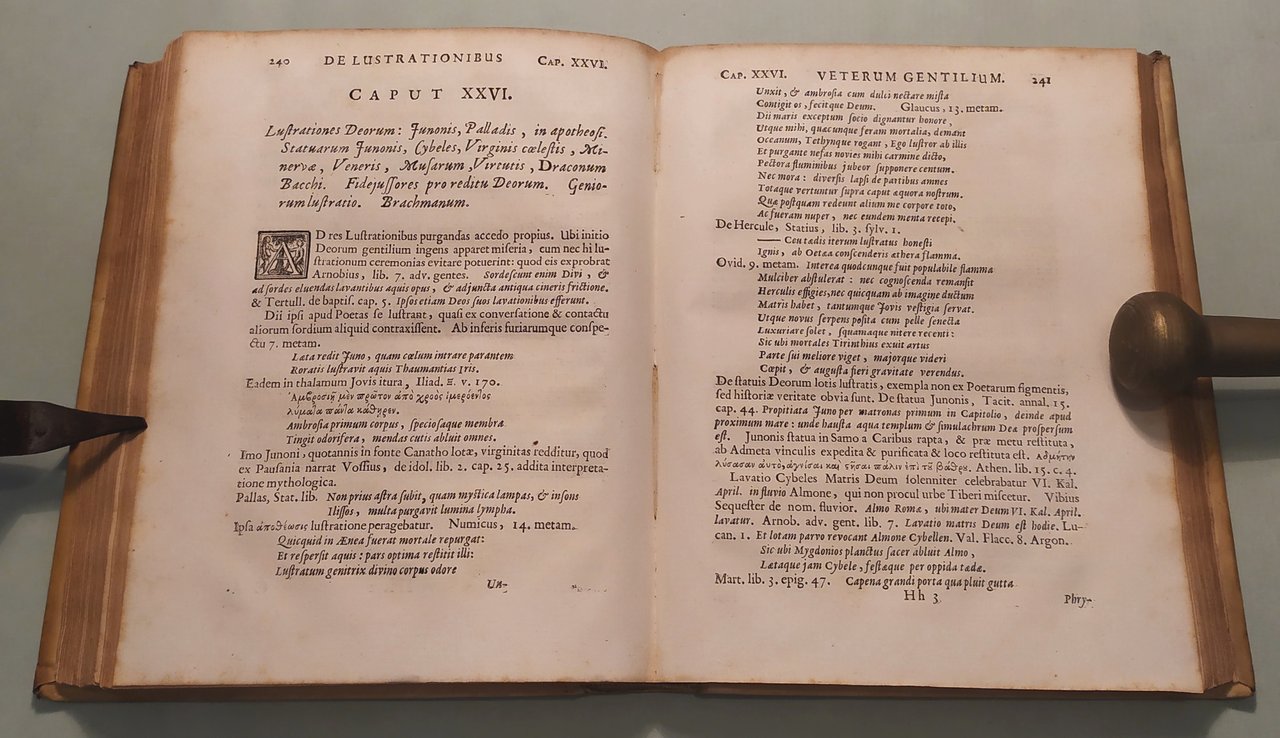 240 DE LUSTRATIONIBUS CAP. XXVI.
CAPUT XXVI.
Luſtrationes Deorum: Junonis, Palladis, in apotheoſi.
Statuarum Junonis, Cybeles, Virginis cœleſtis, Mi-
nervæ, Veneris, Muſarum, Virtutis, Draconum
Bacchi. Fidejuſſores pro reditu Deorum. Genio-
rum luſtratio. Brachmanum.
AD res Luſtrationibus purgandas accedo propius. Ubi initio
Deorum gentilium ingens apparet miſeria, cum nec hi lu-
ſtrationum ceremonias evitare potuerint: quod eis exprobrat
Arnobius, lib. 7. adv. gentes. Sordeſcunt enim Divi, &
ad ſordes eluendas lavantibus aquis opus, & adjuncta antiqua cineris frictione.
& Tertull. de baptiſ. cap. 5. Ipſos etiam Deos ſuos lavationibus efferunt.
Dii ipſi apud Poetas ſe luſtrant, quaſi ex converſatione & contactu
aliorum ſordium aliquid contraxiſſent. Ab inferis furiarumque conſpe-
ctu 7. metam.
Læta redit Juno, quam cœlum intrare parantem
Roratis luſtravit aquis Thaumantias Iris.
Eadem in thalamum Jovis itura, Iliad. Ξ. v. 170.
Ἀμβροσίῃ μὲν πρῶτον ἀπὸ χροὸς ἱμερόεντος
λύματα πάντα κάθηρεν.
Ambroſia primum corpus, ſpecioſaque membra
Tingit odorifera, mendas cutis abluit omnes.
Imo Junoni, quotannis in fonte Canatho lotæ, virginitas redditur, quod
ex Pauſania narrat Voſſius, de idol. lib. 2. cap. 25. addita interpreta-
tione mythologica.
Pallas, Stat. lib. Non prius aſtra ſubit, quam myſtica lampas, & inſons
Iliſſos, multa purgavit lumina lympha.
Ipſa ἀποθέωσις luſtratione peragebatur. Numicus, 14. metam.
Quicquid in Ænea fuerat mortale repurgat:
Et reſperſit aquis: pars optima reſtitit illi:
Luſtratum genitrix divino corpus odore
Un-
CAP. XXVI. VETERUM GENTILIUM. 241
Unxit, & ambroſia cum dulci nectare miſta
Contigit os, fecitque Deum. Glaucus, 13. metam.
Dii maris exceptum ſocio dignantur honore,
Utque mihi, quæcunque feram mortalia, demant
Oceanum, Tethynque rogant, Ego luſtror ab illis
Et purgante nefas novies mihi carmine dicto,
Pectora fluminibus jubeor ſupponere centum.
Nec mora: diverſis lapſi de partibus amnes
Totaque vertuntur ſupra caput æquora noſtrum.
Quæ poſtquam redeunt alium me corpore toto,
Ac fueram nuper, nec eundem menta recepi.
De Hercule, Statius, lib. 3. ſylv. 1.
—— Ceu tædis iterum luſtratus honeſti
Ignis, ab Oetæa conſcenderis æthera flamma.
Ovid. 9. metam. Interea quodcunque fuit populabile flamma
Mulciber abſtulerat: nec cognoſcenda remanſit
Herculis effigies, nec quicquam ab imagine ductum
Matris habet, tantumque Jovis veſtigia ſervat.
Utque novus ſerpens poſita cum pelle ſenecta
Luxuriare ſolet, ſquamaque nitere recenti:
Sic ubi mortales Tirinthius exuit artus
Parte ſui meliore viget, majorque videri
Cœpit, & auguſta fieri gravitate verendus.
De ſtatuis Deorum lotis luſtratis, exempla non ex Poetarum figmentis,
ſed hiſtoriæ veritate obvia ſunt. De ſtatua Junonis, Tacit. annal. 15.
cap. 44. Propitiata Juno per matronas primum in Capitolio, deinde apud
proximum mare: unde hauſta aqua templum & ſimulachrum Deæ proſperſum
eſt. Junonis ſtatua in Samo a Caribus rapta, & præ metu reſtituta,
ab Admeta vinculis expedita & purificata & loco reſtituta eſt. Ἀδμήτην
λύσασαν αὐτὸ, ἁγνίσαι καὶ στῆσαι πάλιν ἐπὶ τῦ βάθρυ. Athen. lib. 15. c. 4.
Lavatio Cybeles Matris Deum ſolenniter celebrabatur VI. Kal.
April. in fluvio Almone, qui non procul urbe Tiberi miſcetur. Vibius
Sequeſter de nom. fluvior. Almo Romæ, ubi mater Deum VI. Kal. April.
lavatur. Arnob. adv. gent. lib. 7. Lavatio matris Deum eſt hodie. Lu-
can. 1. Et lotam parvo revocant Almone Cybellen. Val. Flacc. 8. Argon.
Sic ubi Mygdonios planctus ſacer abluit Almo,
Lætaque jam Cybele, feſtæque per oppida tædæ.
Mart. lib. 3. epig. 47. Capena grandi porta qua pluit gutta
Hh 3
Phry-